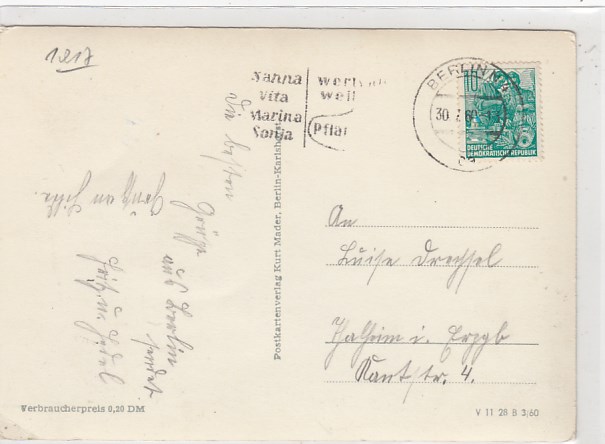 1217
Sanna
Vita
Marina
Sonja
wertvoll
weil
Pflan
BERLIN N 4
30
10
DEUTSCHE
DEMOKRATISCHE REPUBLIK
Die besten
Grüße
aus Berlin
sendet
Fritz u. Hedel
Gruß an Hilde.
Postkartenverlag Kurt Mader, Berlin-Karlshorst
An
Luise Drechsel
Thalheim i. Erzgb
Kantstr. 4.
Verbraucherpreis 0,20 DM
V 11 28 B 3/60